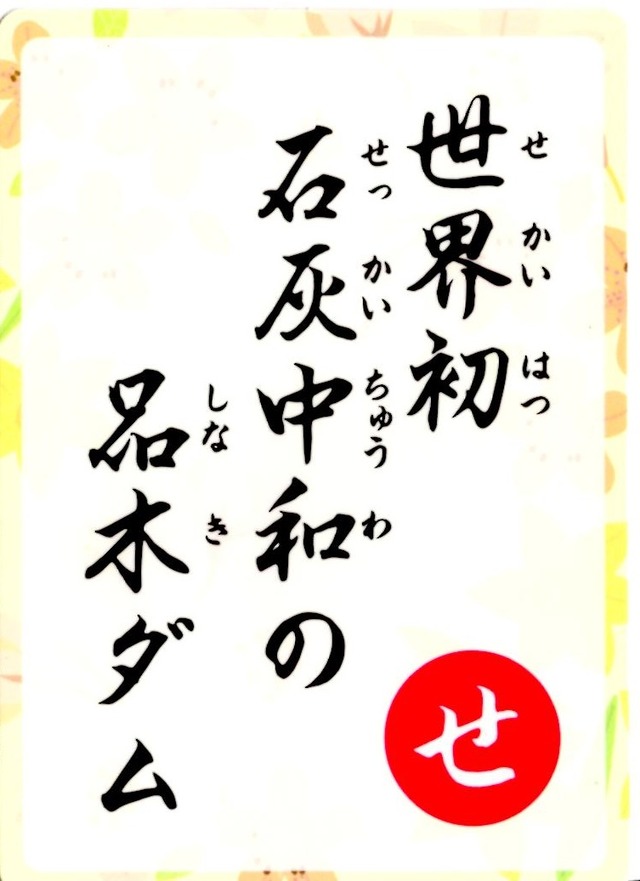 世界初
せかいはつ
石灰中和の
せっかいちゅうわ
品木ダム
しなき
せ